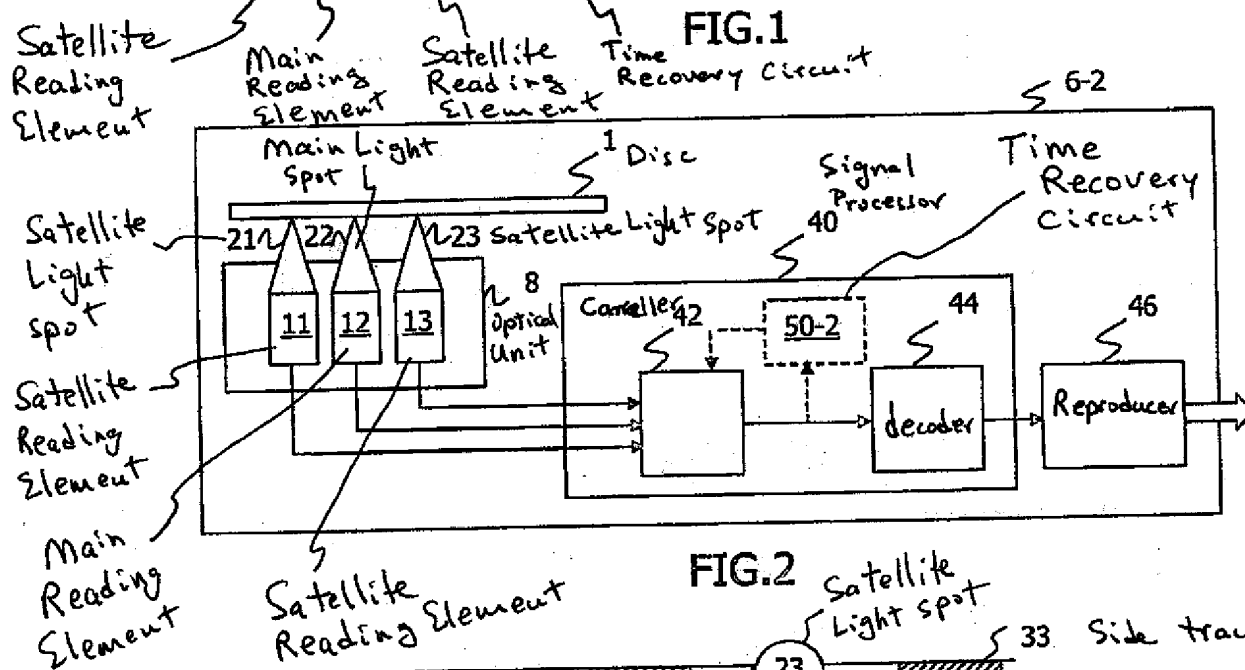 FIG.1
Satellite
Reading
Element
Main
Reading
Element
Satellite
Reading
Element
Time
Recovery Circuit
6-2
Main Light
Spot
1 Disc
Signal
Processor
Time
Recovery
Circuit
Satellite
Light
Spot
21
22
23 Satellite Light Spot
40
8
Optical
Unit
11
12
13
Canceller
42
50-2
44
46
decoder
Reproducer
Satellite
Reading
Element
Main
Reading
Element
Satellite
Reading Element
FIG.2
Satellite
Light Spot
33 Side trac
23